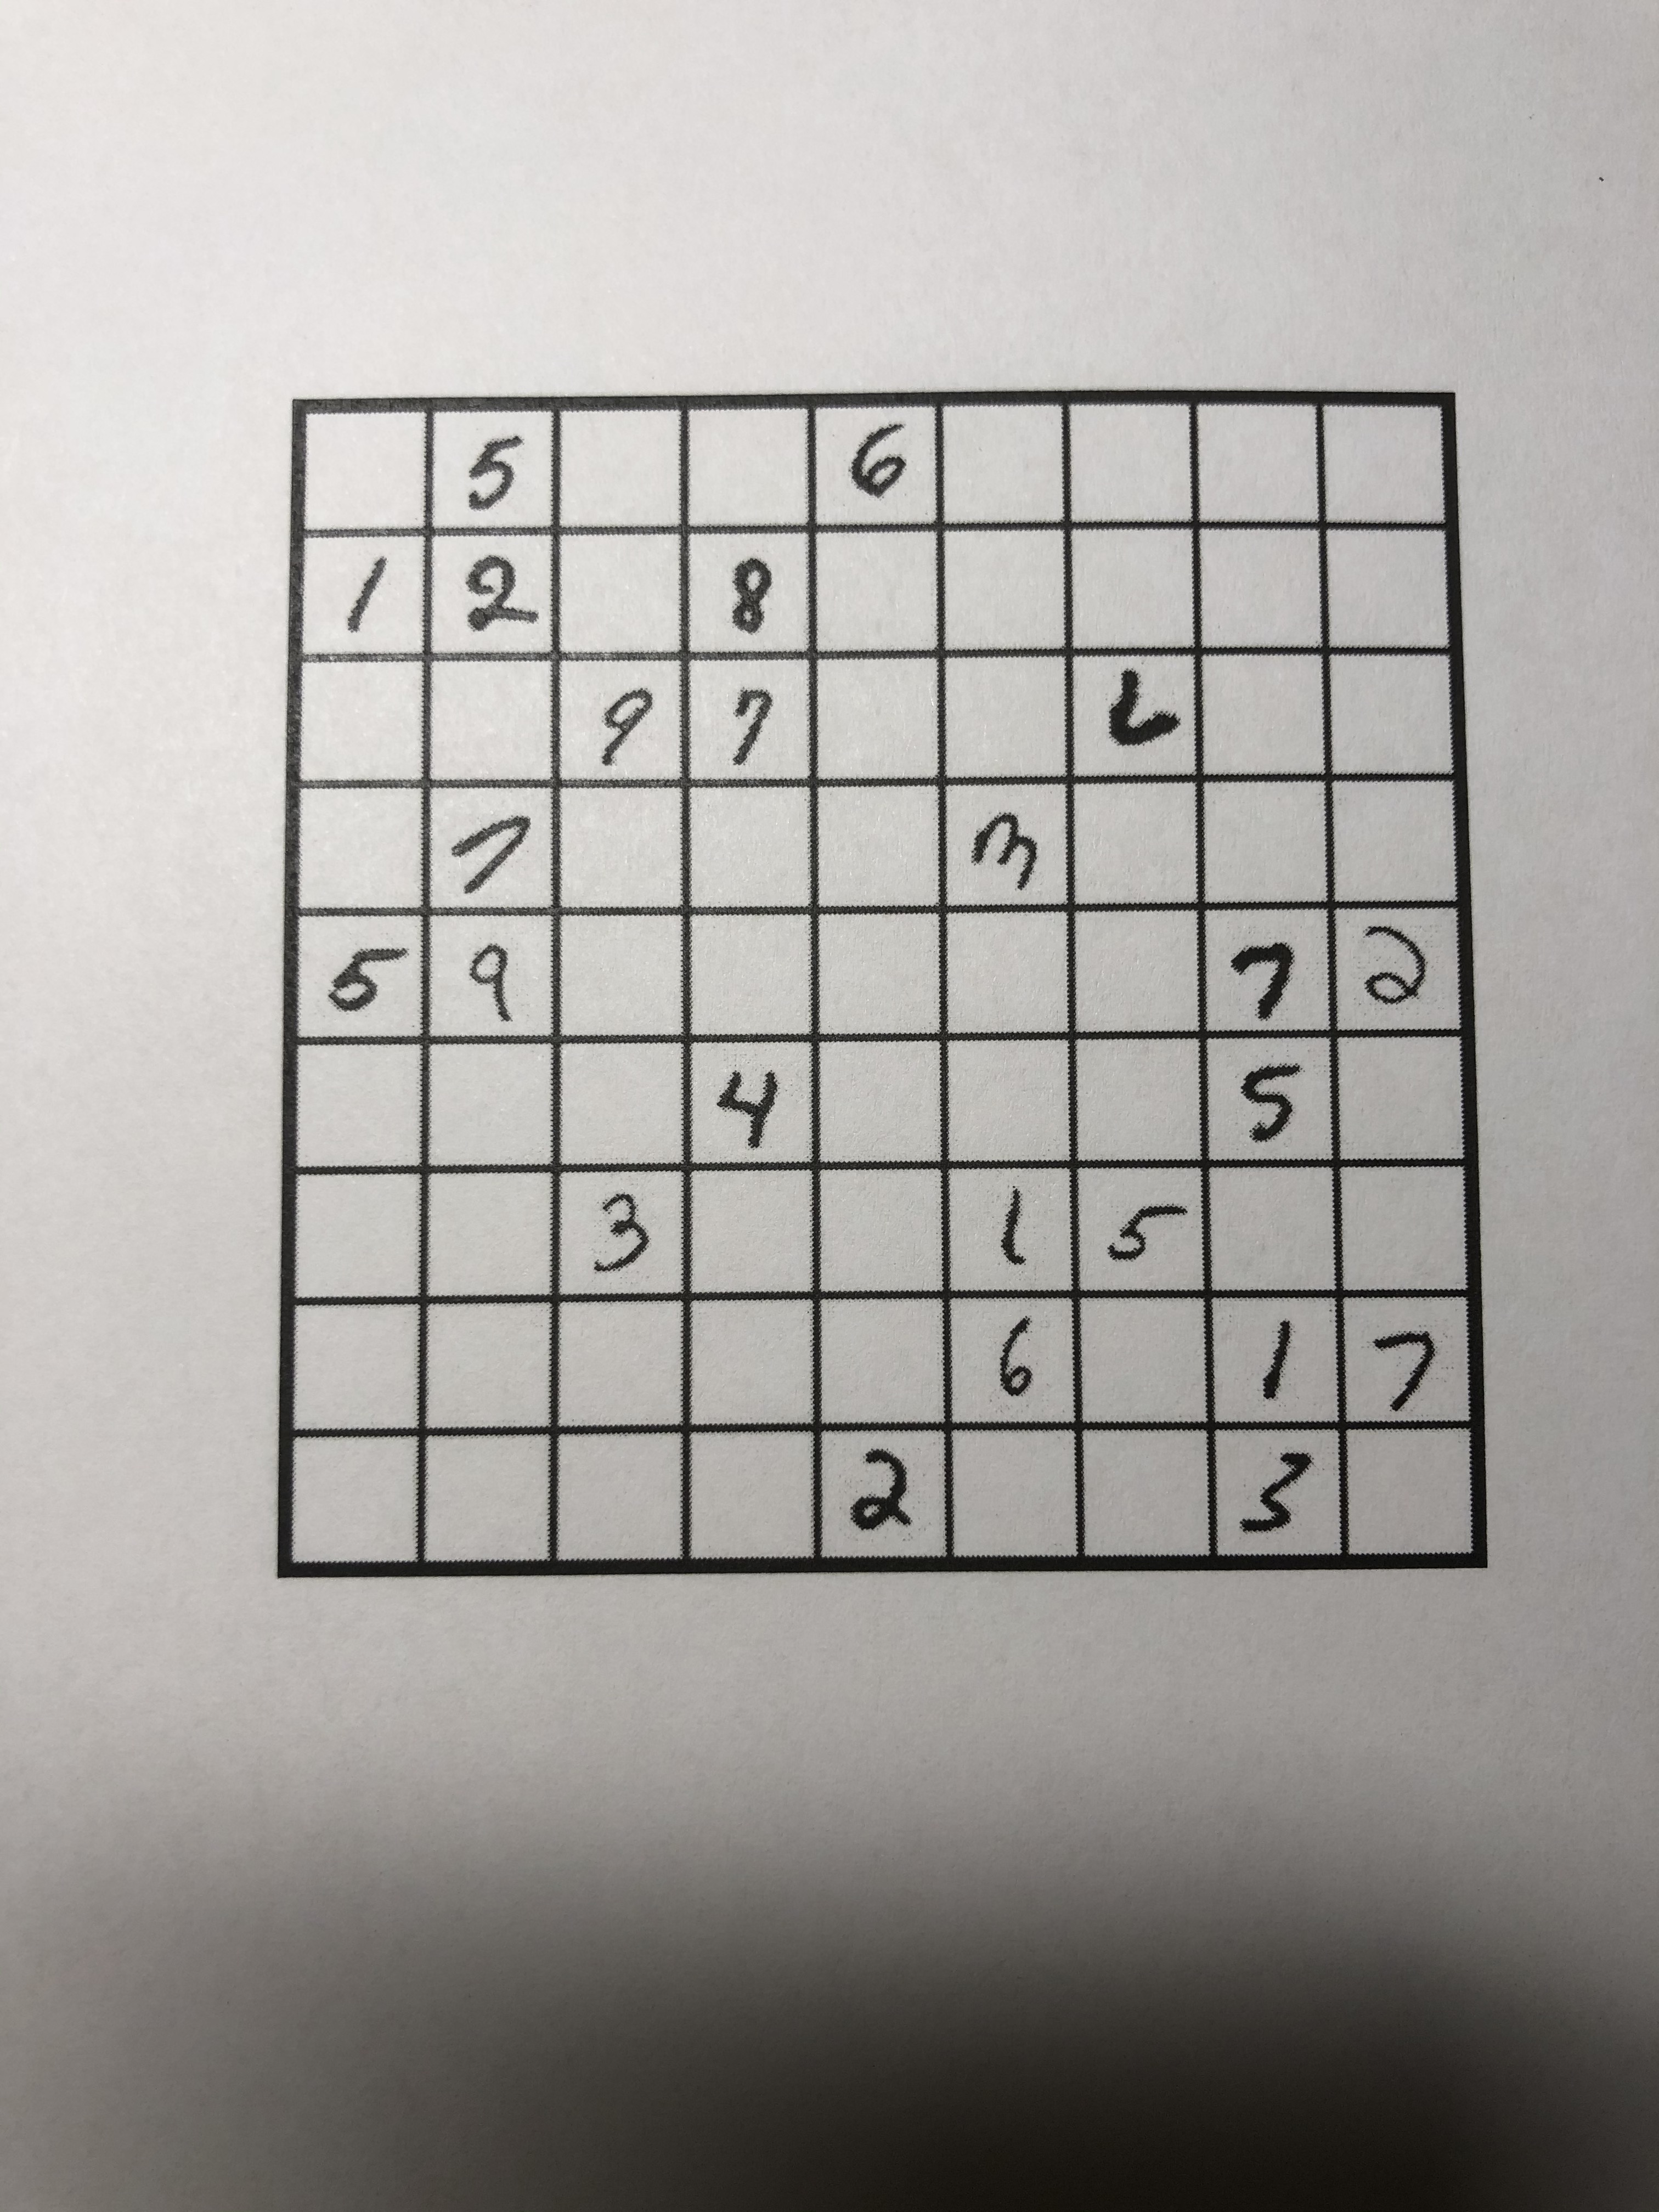 5 6
1 2 8
9 7 6
7 3
5 9 7 2
4 5
3 1 5
6 1 7
2 3